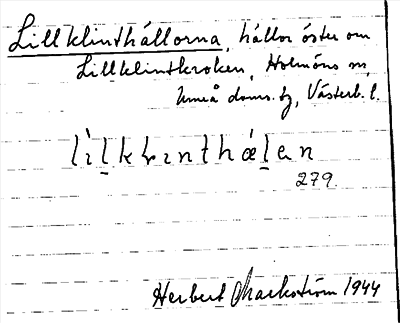 Lillklinthällorna, hällor öster om
Lillklintkroken, Holmöns sn,
Umeå doms. tg, Västerb. l.
lìl̠kLınthǽl̠an
279.
Herbert Markström 1944